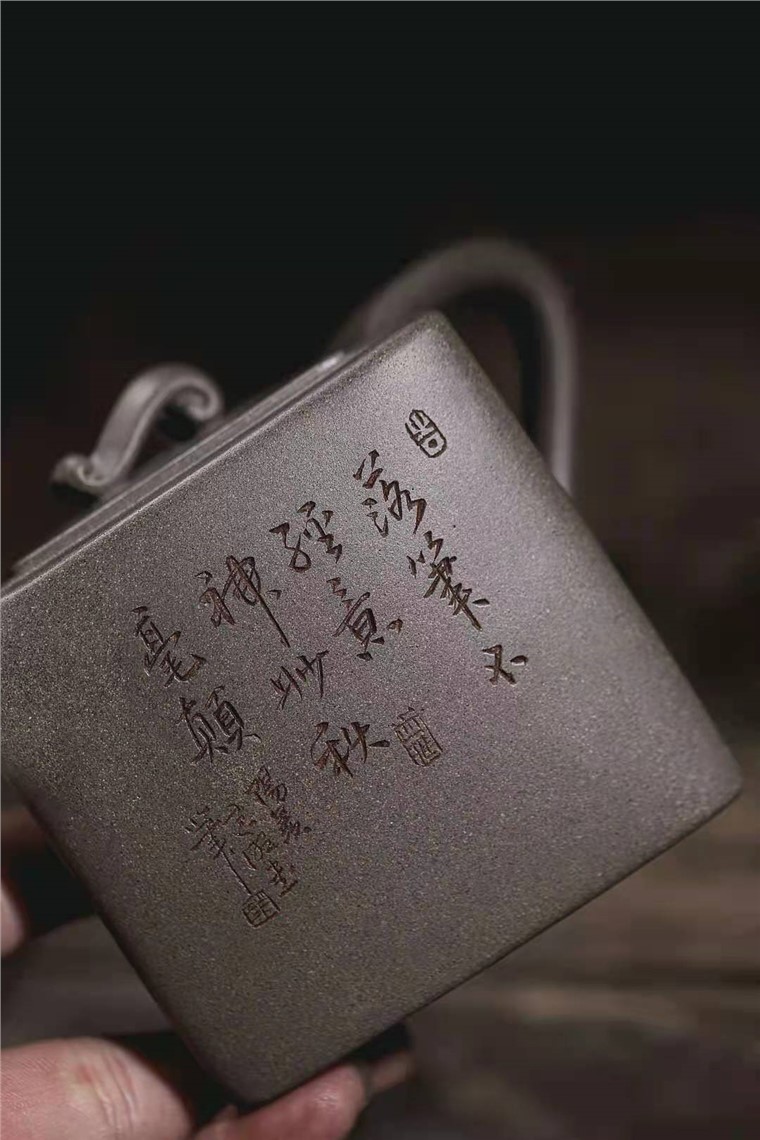 落筆不
經意
神妙秋
毫顛
陽羨